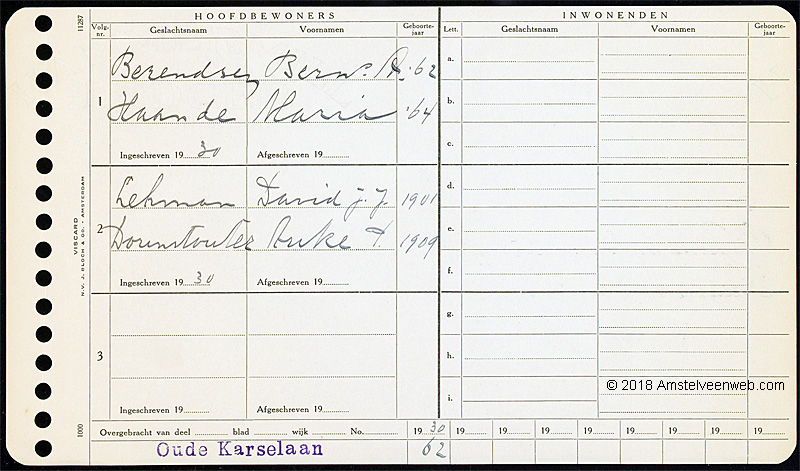 HOOFDBEWONERS
INWONENDEN
11287
Volg-nr. Geslachtsnaam Voornamen Geboorte-jaar Lett. Geslachtsnaam Voornamen Geboorte-jaar
Berendsen Bern. A. '62 a.
1 Haan de Maria '64 b.
c.
Ingeschreven 19 30 Afgeschreven 19
Lehman David J. J. 1901 d.
2 1909 e.
f.
Ingeschreven 19 30 Afgeschreven 19
VISCARD
N.V. J. BLOCH & CO. - AMSTERDAM
g.
3 h.
i.
Ingeschreven 19 Afgeschreven 19
© 2018 Amstelveenweb.com
1000
Overgebracht van deel blad wijk No. 19 30 19 19 19 19 19 19 19 19
Oude Karselaan 62